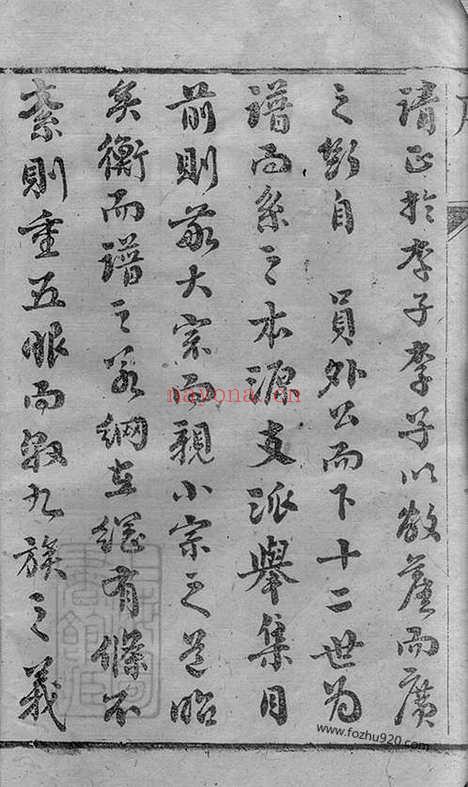 請正於李子李子以敬產而廣
之斷自 員外公而下十二世為
譜而系之本源支派舉集目
前則敬大宗而親小宗之道昭
矣衡而譜之若綱在綱有條不
紊則重五服而敦九族之義
nayona.cn
www.fozhu920.com